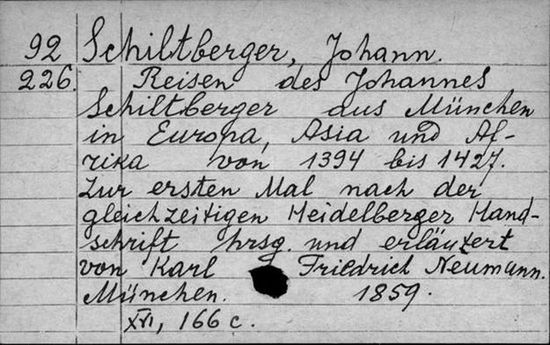 92 Schiltberger, Johann.
226. Reisen des Johannes
Schiltberger aus München
in Europa, Asia und Af-
rika von 1394 bis 1427.
Zur ersten Mal nach der
gleichzeitigen Heidelberger Hand-
schrift hrsg. und erläutert
von Karl Friedrich Neumann.
München. 1859.
XVI, 166 c.